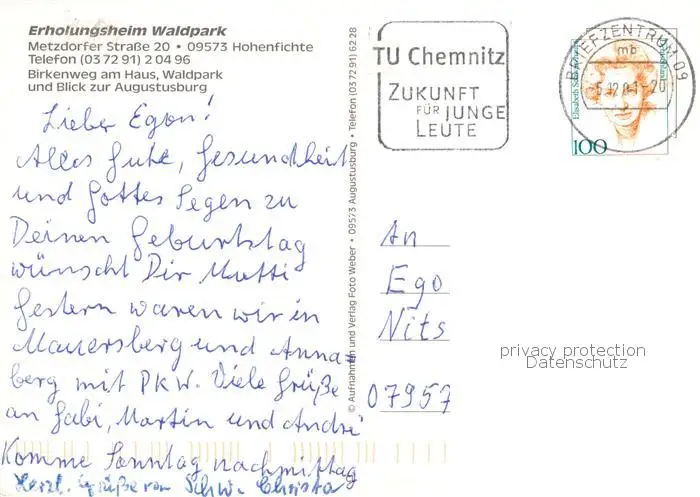 Erholungsheim Waldpark
Metzdorfer Straße 20 • 09573 Hohenfichte
Telefon (03 72 91) 2 04 96
Birkenweg am Haus, Waldpark
und Blick zur Augustusburg
Lieber Egon!
Alles Gute, Gesundheit
und Gottes Segen zu
Deinen Geburtstag
wünscht Dir Mutti
Gestern waren wir in
Mauersberg und Anna=
berg mit PKW. Viele Grüße
an Gabi, Martin und André
Komme Sonntag nachmittag
Herzl. Grüße von Schw. Christa
© Aufnahmen und Verlag Foto Weber • 09573 Augustusburg • Telefon (03 72 91) 62 28
TU Chemnitz
ZUKUNFT
FÜR JUNGE
LEUTE
BRIEFZENTRUM 09
mb
-20
100
An
Ego
Nits
07957
privacy protection
Datenschutz